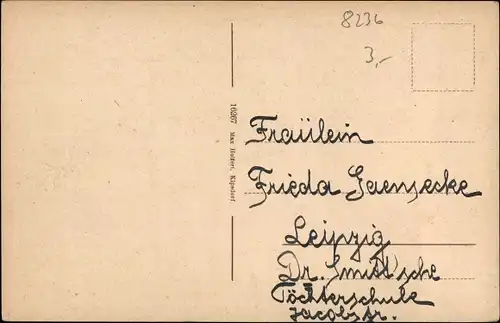 8236
3,-
16267 Max Huldert, Kipsdorf
Fräulein
Frieda Gaensecke
Leipzig
Dr. Smitt'sche
Töchterschule
Jacobstr.